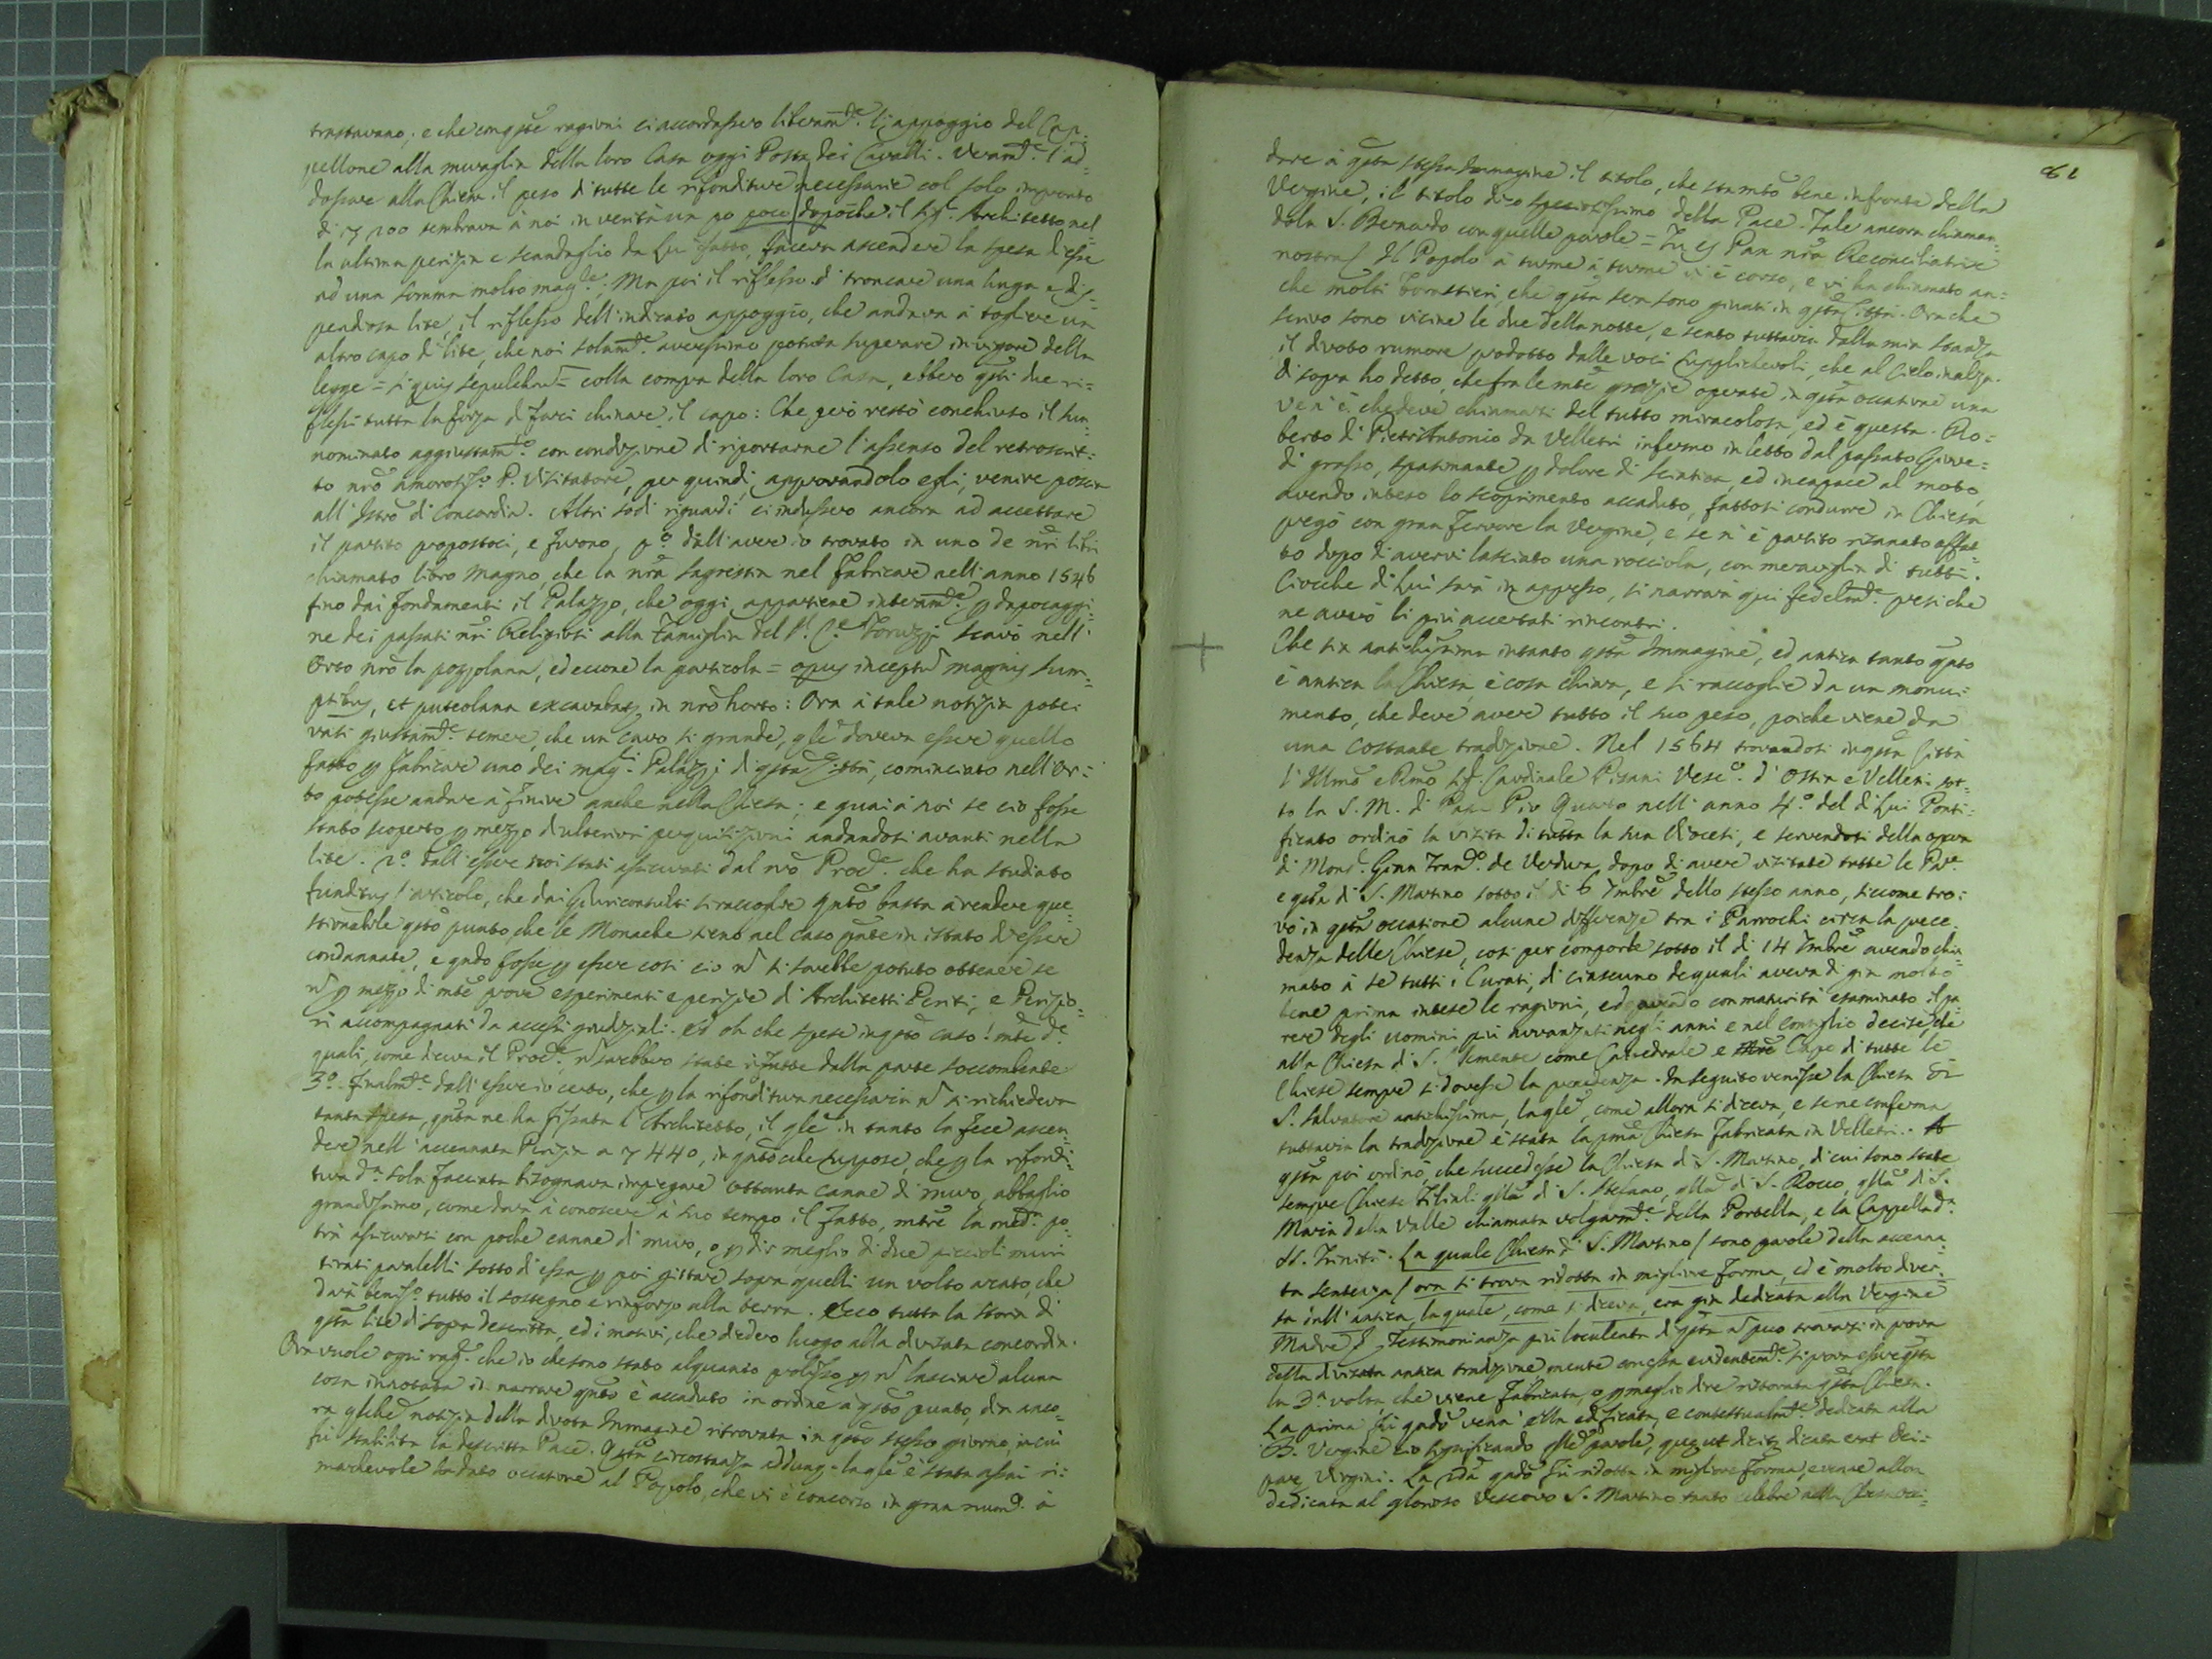 trastavano; e che con qste ragioni ci accordassero liberamte. l'appoggio del Cap-
pellone alla muraglia della loro Casa oggi Posta dei Cavalli. Veramte. l'ad-
dossare alla Chiesa il peso di tutte le rifonditure necessarie col solo
di 200 sembrava à noi in verità un po poco dopoche il Sigr. Architetto nel-
la ultima perizia e scandaglio da lui fatto, faceva ascendere la spesa d'esse
ad una somma molto magre.; Ma poi il riflesso di troncare una lunga e dis-
pendiosa lite, il riflesso dell'indicato appoggio, che andava à togliere un
altro capo di lite, che noi solamte. averessimo potuta superare in vigore della
legge = si quis sepulchrum = colla compra della loro Casa, ebbero qsti due ri=
flessi tutta la forza di farci chinare il capo: Che però restò conchiuso il sun=
nominato aggiustamto. con condizione di riportarne l'assenso del retroscrit=
to nrõ amorosisso. P. Visitatore, per quindi, approvandolo egli, venire poscia
all'Istrõ di Concordia. Altri sodi riguardi ci indussero ancora ad accettare
il partito propostoci, e furono, po. dall'avere io trovato in uno de nri libri
chiamato libro Magno, che la nrã Sagrestia nel fabricare nell'anno 1546
fino dai fondamenti il Palazzo, che oggi appartiene interamte. p dapocaggi=
ne dei passati nri Religiosi alla Famiglia del Sr. Ce. Toruzzi scavò nell'
Orto nrõ la pozzolana, ed eccone la particola = opus inceptum magnis sum=
ptibus, et puteolana excavabatur in nrõ horto: Ora à tale notizia pote-
vasi giustamte. temere, che un cavo si grande, qle doveva essere quello
fatto p fabricare uno dei magri. Palazzi di qsta Città, cominciato nell'Or=
to potesse andare à finire anche nella Chiesa; e guai à noi se ciò fosse
stato scoperto p mezzo d'ulteriori perquisizioni andandosi avanti nella
lite. 2o. dall'essere noi stati assicurati dal nrõ Proce. che ha studiato
funditus l'articolo, che dai Giuriconsulti si raccoglie qnto basta à rendere que=
stionabile qsto punto, che le Monache sieno nel caso pnte in istato d'essere
condannate, e qndo fosse p essere così ciò n si sarebbe potuto ottenere se
n p mezzo di mte prove esperimenti e perizie di Architetti Periti, e Perizio=
ri accompagnati da accessi giudiziali. Ed oh che spese in qsto caso! mte de.
quali, come diceva il Proce. n sarebbero state rifatte dalla parte soccombente
3o. Finalmte. dall'essere io certo, che p la rifonditura necessaria n si richiedeva
tanta spesa, qnta ne ha fissata l'Architetto, il qle in tanto la fece ascen=
dere nell'accennata Perizia a 7440, in qnto che suppose, che p la rifondi=
tura da. sola facciata bisognava impiegare ottanta canne di muro, abbaglio
grandissimo, come darà à conoscere à suo tempo il fatto, mtre la meda. po=
trà assicurarsi con poche canne di muro, o p dir meglio di due piccioli muri
tirati paralelli sotto di essa p poi gittare sopra quelli un volto arcato, che
darà benisso. tutto il sostegno e rinforzo alla terra. Ecco tutta la storia di
qsta lite di sopra descritta, ed i motivi, che diedero luogo alla divisata concordia.
Ora vuole ogni rage. che io che sono stato alquanto prolisso p n lasciare alcuna
cosa innotata in narrare qnto è accaduto in ordine à qsto punto, dia anco=
ra qlche notizia della divota Immagine ritrovata in qsto stesso giorno, in cui
fù stabilita la descritta Pace. Qsta circostanza adunq. la qle è stata assai ri=
marchevole ha dato occasione al Popolo, che vi è concorso in gran numo. à
61
dare à qsta stessa Immagine il titolo, che sta mto bene in fronte della
Vergine, il titolo dico speciosissimo della Pace. Tale ancora chiaman=
dola S. Bernardo con quelle parole = Tu es Pax nrã Reconciliatrix
nostra/ Il Popolo à turme à turme vi è corso, e vi ha chiamato an=
che molti Forastieri, che qsta sera sono giunti in qsta Città. Ora che
scrivo sono vicine le due della notte, e sento tuttavia dalla mia stanza
il divoto rumore prodotto dalle voci supplichevoli, che al Cielo inalza.
Di sopra ho detto, che fra le mte grazie operate in qsta occasione una
ve n'è che deve chiamarsi del tutto miracolosa, ed è questa. Ro=
berto di Pietrantonio da Velletri infermo in letto dal passato Giove=
di grasso, spasimante p dolore di sciatica, ed incapace al moto,
avendo inteso lo scoprimento accaduto, fattosi condurre in Chiesa
pregò con gran fervore la Vergine, e se n'è partito risanato affat=
to dopo di avervi lasciato una rocciola, con meraviglia di tutti.
Ciocche di lui sarà in appresso, si narrarà qui fedelmte. presi che
ne avrò li più accertati rincontri.
Che sia antichissima intanto qsta Immagine, ed antica tanto qnto
è antica la Chiesa, è cosa chiara, e si raccoglie da un monu=
mento, che deve avere tutto il suo peso, poiche viene da
una costante tradizione. Nel 1564 trovandosi in qsta Città
l'Illmo e Rmo Sigr. Cardinale Pisani Vesco. d'Ostia e Velletri sot=
to la S. M. di Papa Pio Quarto nell'anno 4o. del di lui Ponti=
ficato ordinò la visita di tutta la sua Diocesi, e servendosi della opera
di Monsr. Gian Frano. de Verdura, dopo di avere visitate tutte le Pare.
e qsta di S. Martino sotto il di 6 Xmbre dello stesso anno, siccome tro=
vò in qsta occasione alcune differenze tra i Parrochi circa la prece=
denza delle Chiese, così per comporle sotto il di 14 Xmbre avendo chia=
mato à se tutti i Curati, di ciascuno de quali aveva di gia molto
bene prima intese le ragioni, ed avendo con maturità esaminato il pa=
rere degli uomini più avvanzati negli anni e nel consiglio decise, che
alla Chiesa di S. Clemente come Cattedrale e Cape di tutte le
Chiese sempre si dovesse la precedenza. In seguito venisse la Chiesa di
S. Salvatore antichissima, la qle, come allora si diceva, e se ne conferma
tuttavia la tradizione è stata la pma Chiesa fabricata in Velletri. A
qsta poi ordinò, che succedesse la Chiesa di S. Martino, di cui sono state
sempre Chiese Filiali qlla di S. Stefano, qlla di S. Rocco, qlla di S.
Maria della Valle chiamata volgarmte. della Portella, e la Cappella da.
SS. Trinità. La quale Chiesa di S. Martino / sono parole della accenna=
ta sentenza / ora si trova ridotta in migliore forma, ed è molto diver=
sa dall'antica, la quale, come si diceva, era gia dedicata alla Vergine
Madre / Testimonianza più loculenta di qsta n può trovarsi in prova
della divisata antica tradizione, mentre con essa evidentemte. si prova essere qsta
la 3a. volta, che viene fabricata, o p meglio dire ristorata qsta Chiesa.
La prima fù qndo venn' ella edificata, e contestualmte. dedicata alla
B. Vergine ciò significando qlle parole, quae ut dicitur dicata erat Dei=
parae Virgini. La 2da qndo fù ridotta in migliore forma, e venne allora
dedicata al glorioso Vescovo S. Martino tanto celebre nella